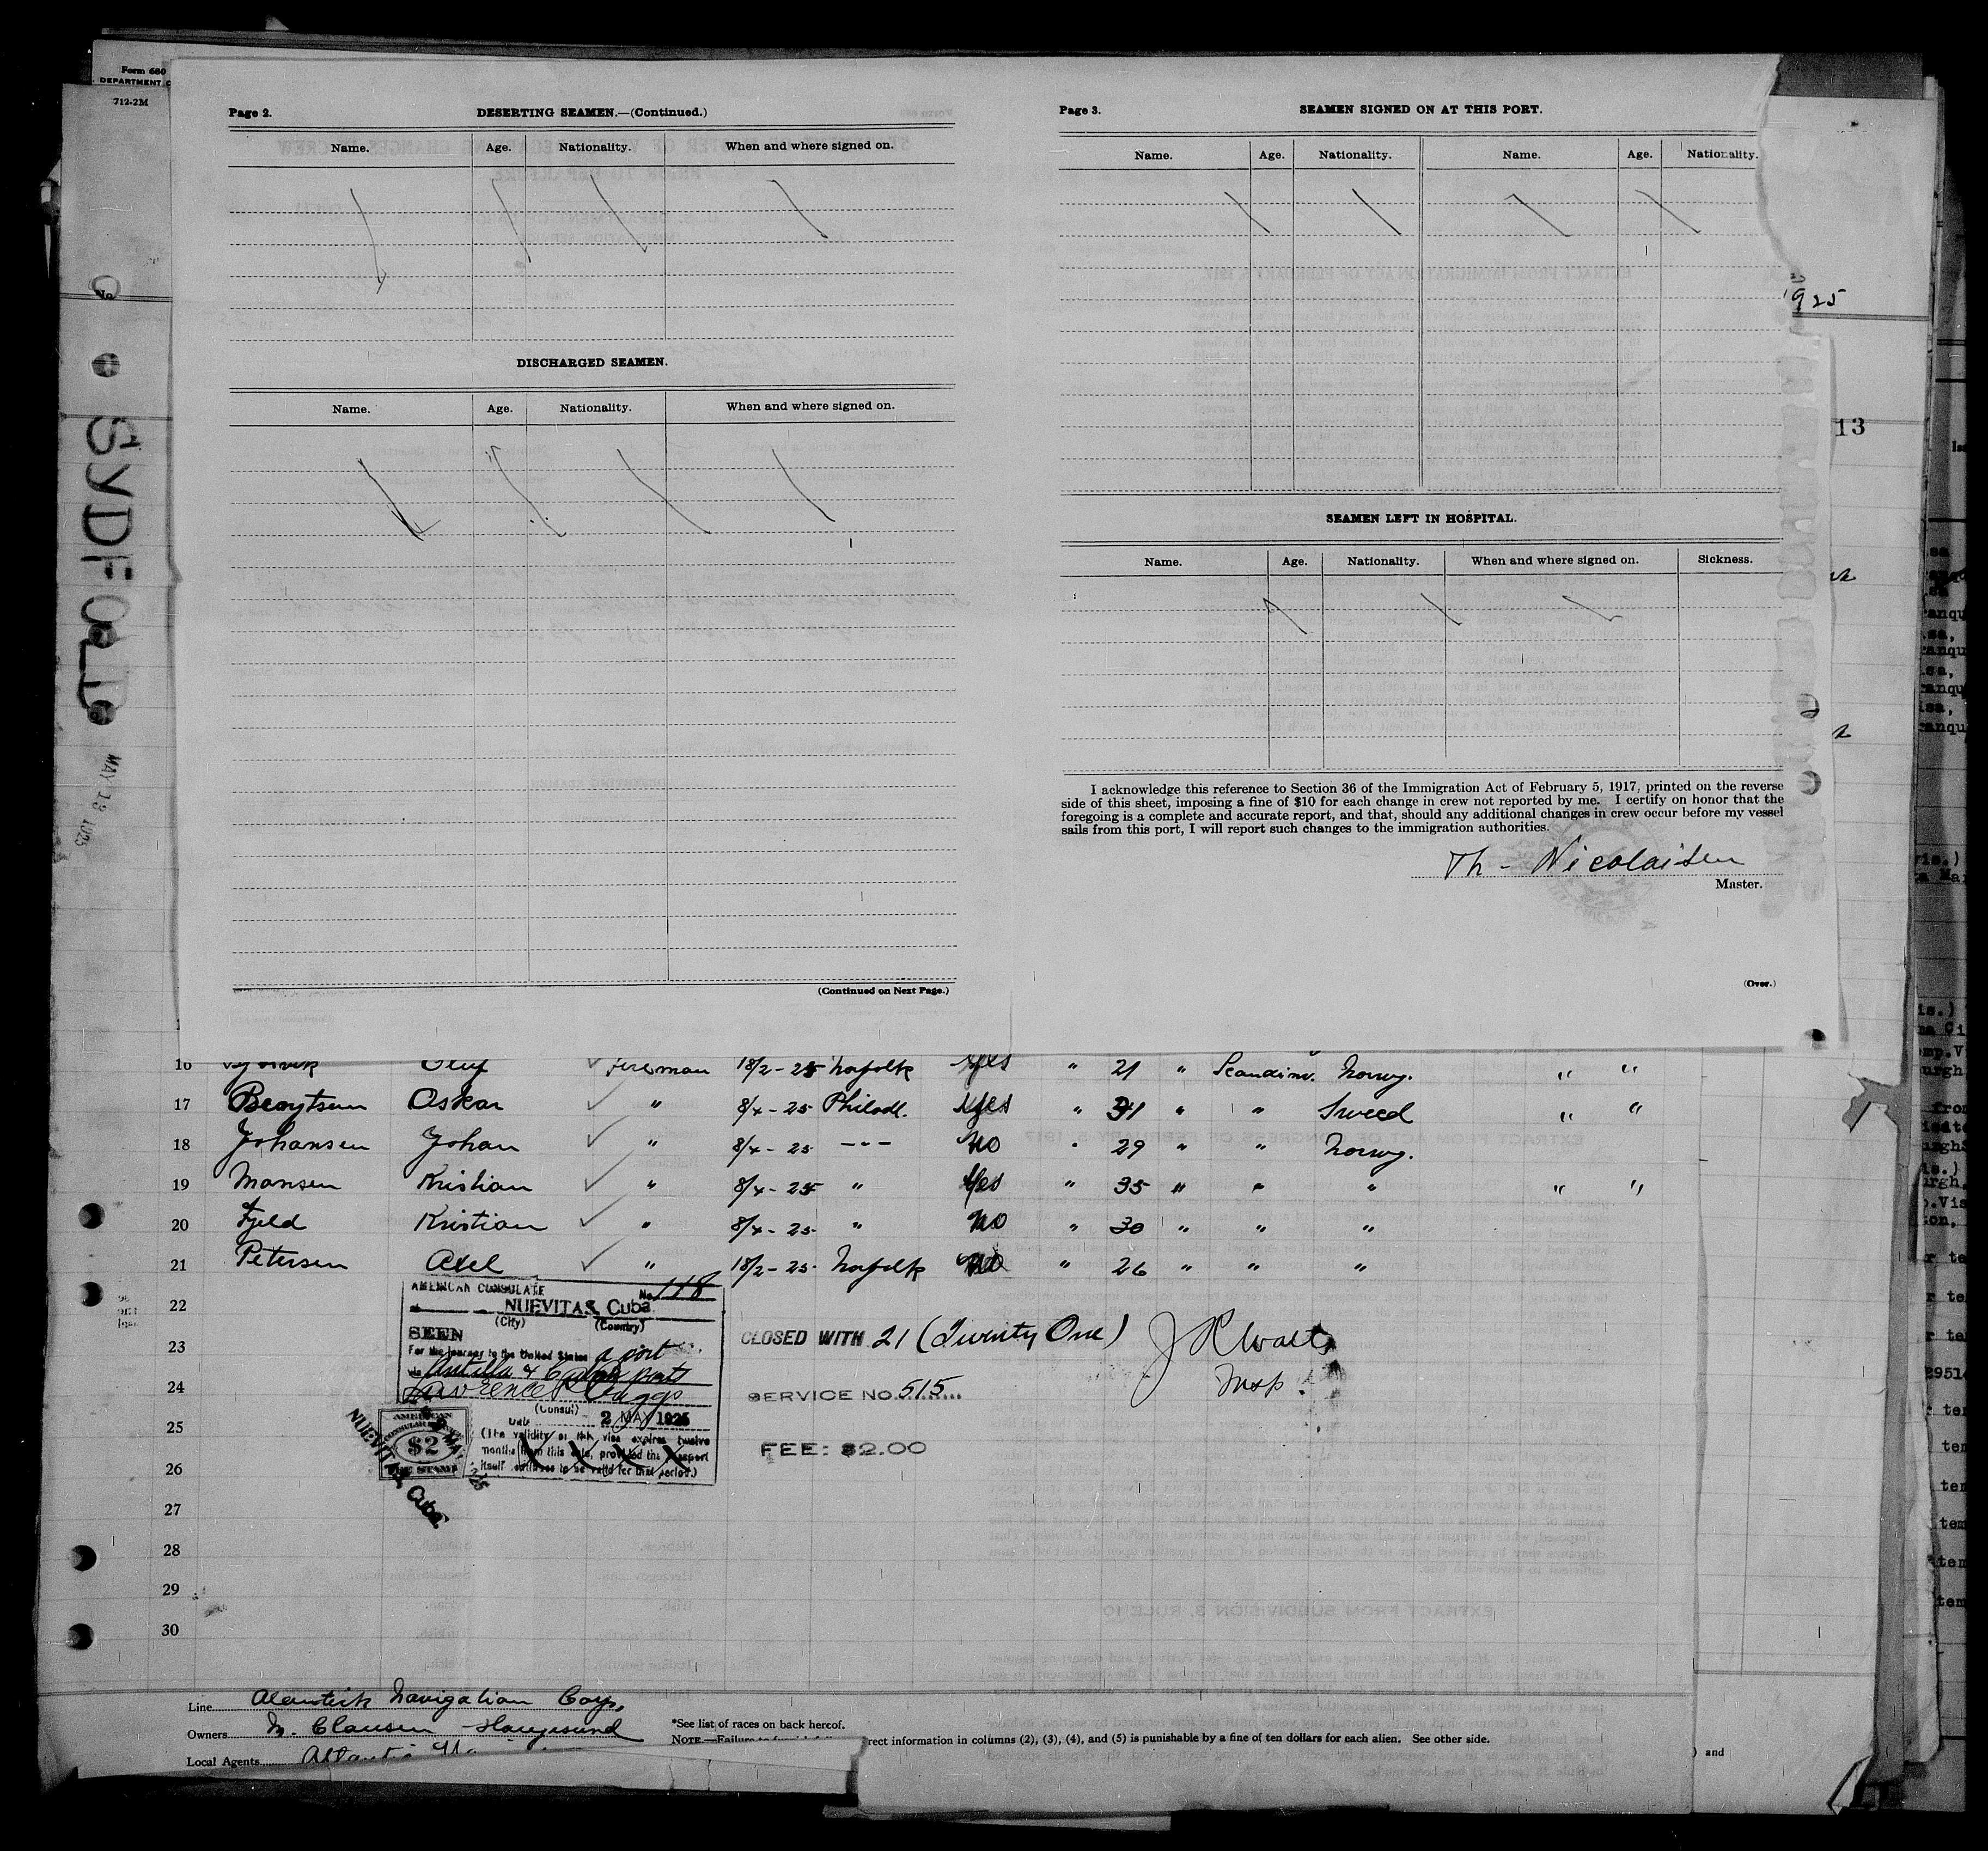 Form 680
DEPARTMENT
712-2M
No.
SYDFOLD
MAY 13 1925
Page 2.
DESERTING SEAMEN.—(Continued.)
Name. Age. Nationality. When and where signed on.
DISCHARGED SEAMEN.
Name. Age. Nationality. When and where signed on.
(Continued on Next Page.)
Page 3.
SEAMEN SIGNED ON AT THIS PORT.
Name. Age. Nationality. Name. Age. Nationality.
SEAMEN LEFT IN HOSPITAL.
Name. Age. Nationality. When and where signed on. Sickness.
I acknowledge this reference to Section 36 of the Immigration Act of February 5, 1917, printed on the reverse
side of this sheet, imposing a fine of $10 for each change in crew not reported by me. I certify on honor that the
foregoing is a complete and accurate report, and that, should any additional changes in crew occur before my vessel
sails from this port, I will report such changes to the immigration authorities.
Th - Nicolaisen
Master.
(Over.)
1925
13
16 Oluf Fireman 18/2-25 Norfolk Yes " 21 " Scandinv. Norwg. " "
17 Bengtsen Oskar " 8/4-25 Philadl. Yes " 31 " " Sweed " "
18 Johansen Johan " 8/4-25 -"- No " 29 " " Norwg.
19 Monsen Kristian " 8/4-25 " Yes " 35 " " " " "
20 Fjeld Kristian " 8/4-25 " No " 30 " " "
21 Petersen Axel " 18/2-25 Norfolk No " 26 " " "
22
23
24
25
26
27
28
29
30
AMERICAN CONSULATE No. 118
at NUEVITAS, Cuba.
(City) (Country)
SEEN
For the journey to the United States a port
via Antilla & Cuban ports
(Consul)
Date 2 MAY 1925
(The validity of this visa expires twelve
months from this date, provided the passport
itself continues to be valid for that period.)
AMERICAN
CONSULAR SERVICE
$2
FEE STAMP
NUEVITAS, Cuba.
CLOSED WITH 21 (Twenty One)
Insp.
SERVICE NO. 515
FEE: $2.00
Line Atlantick Navigation Corp.
Owners M. Clausen - Haugesund
Local Agents
*See list of races on back hereof.
NOTE.—Failure to rect information in columns (2), (3), (4), and (5) is punishable by a fine of ten dollars for each alien. See other side.
) and